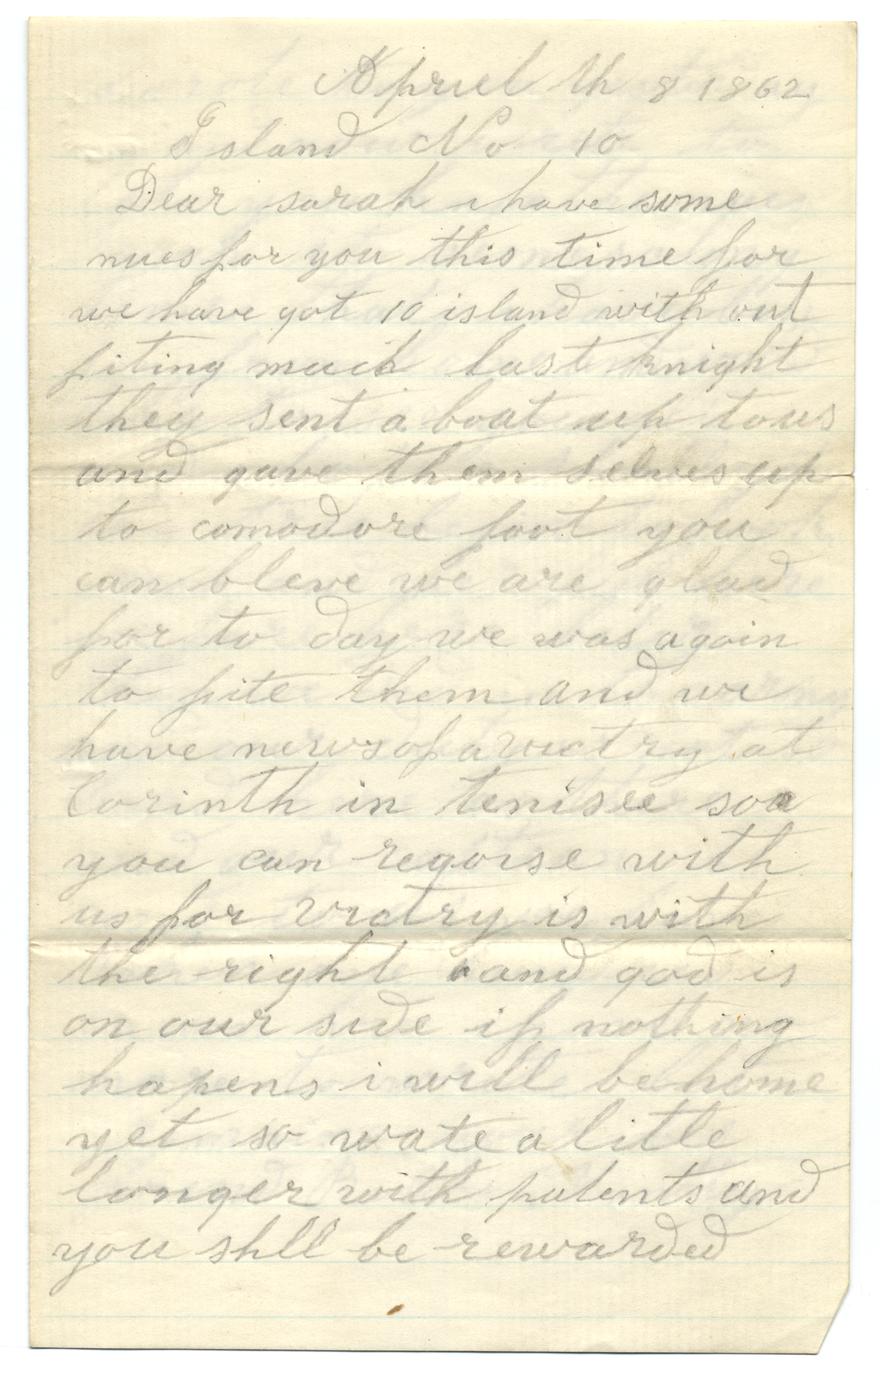 Apriel th 8 1862
Island No 10
Dear sarah i have some
nues for you this time for
we have got 10 island with out
fiting much last knight
they sent a boat up to us
and gave them selves up
to comodore foot you
can bleve we are glad
for to day we was agoin
to fite them and we
have news of a victry at
Corinth in tenisee soa
you can regoise with
us for victry is with
the right and god is
on our side if nothing
hapens i will be home
yet so wate a litle
longer with patents and
you shll be rewarded